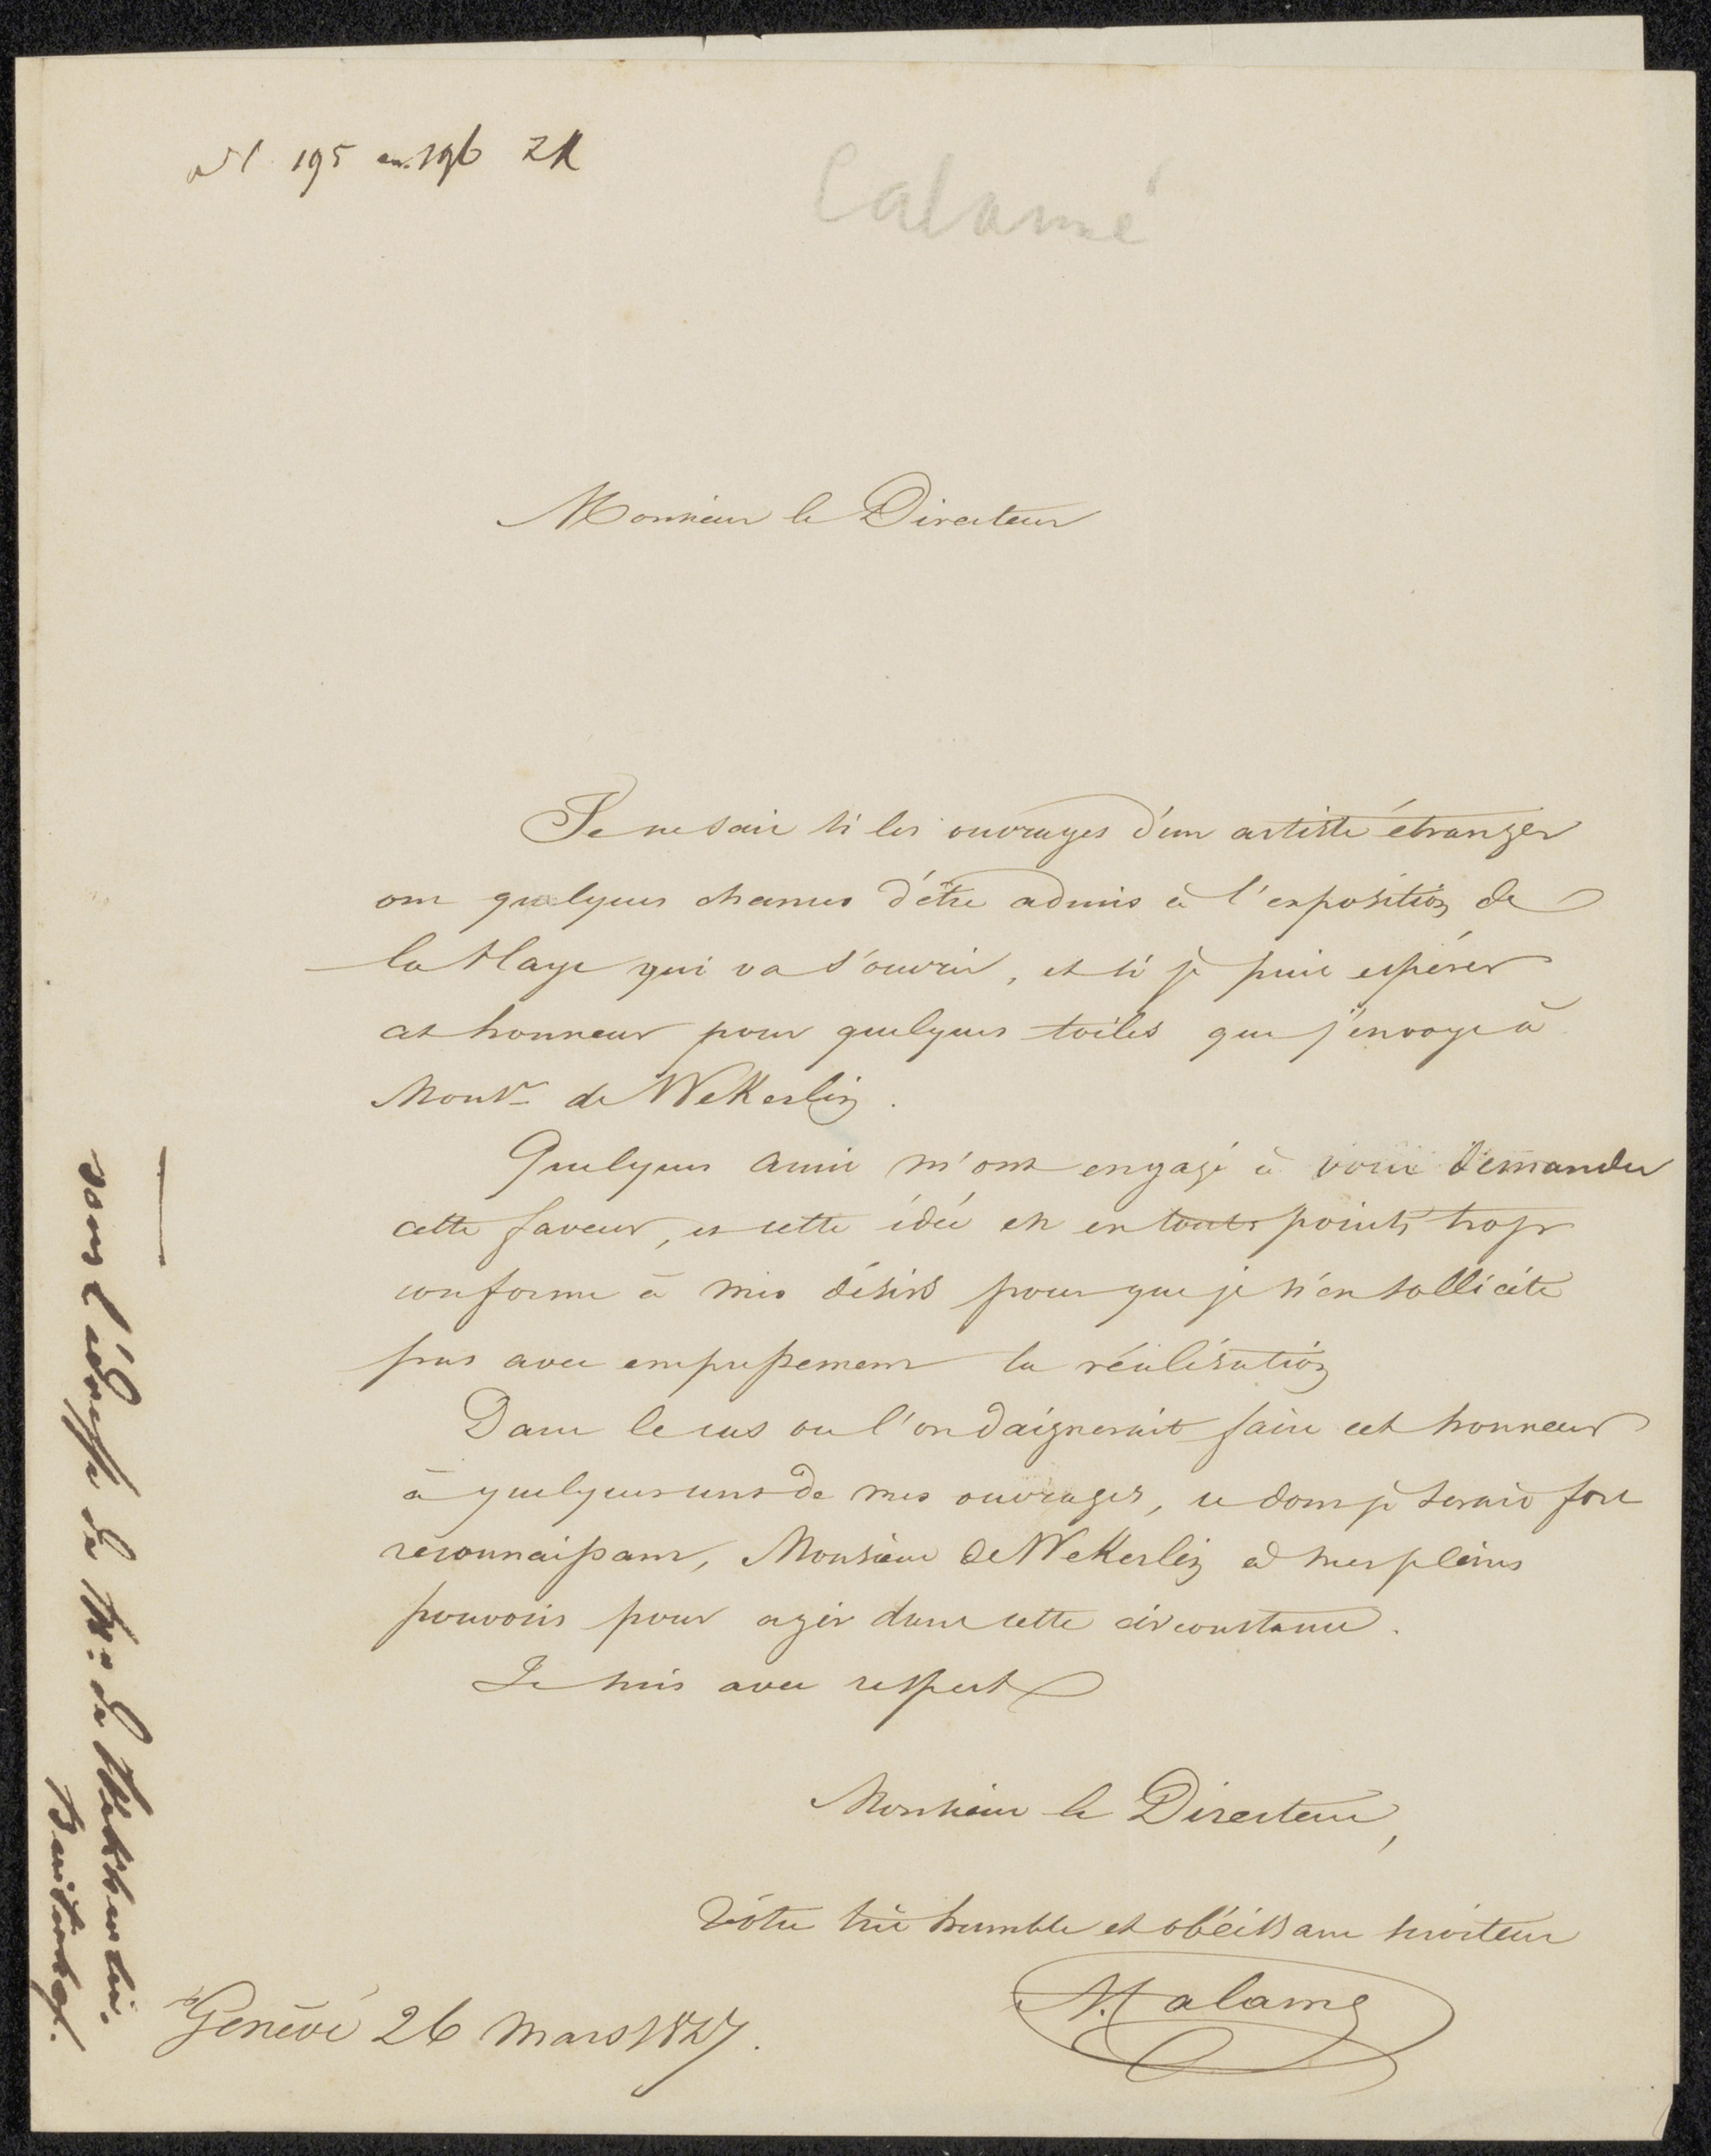 195 en 196 ZK
Calamé
Monsieur le Directeur
Je ne sais si les ouvrages d'un artiste étranger
ont quelques chances d'être admis à l'exposition de
la Haye qui va s'ouvrir, et si je puis espérer
cet honneur pour quelques toiles que j'envoye à
Monsr. de Wekerlin.
Quelques amis m'ont engagé à vous demander
cette faveur, et cette idée est en touts points trop
conforme à mes désirs pour que je n'en sollicite
pas avec empressement la réalisation
Dans le cas ou l'on daignerait faire cet honneur
à quelques uns de mes ouvrages, ce dont je serais fort
reconnaissant, Monsieur de Wekerlin a mes pleins
pouvoirs pour agir dans cette circonstance.
Je suis avec respect
Monsieur le Directeur,
Vôtre très humble et obéissant serviteur
A. Calame
Genève 26 Mars 1847.
sous l'adresse de Mr. de Weckherlin.
Buitenhof.